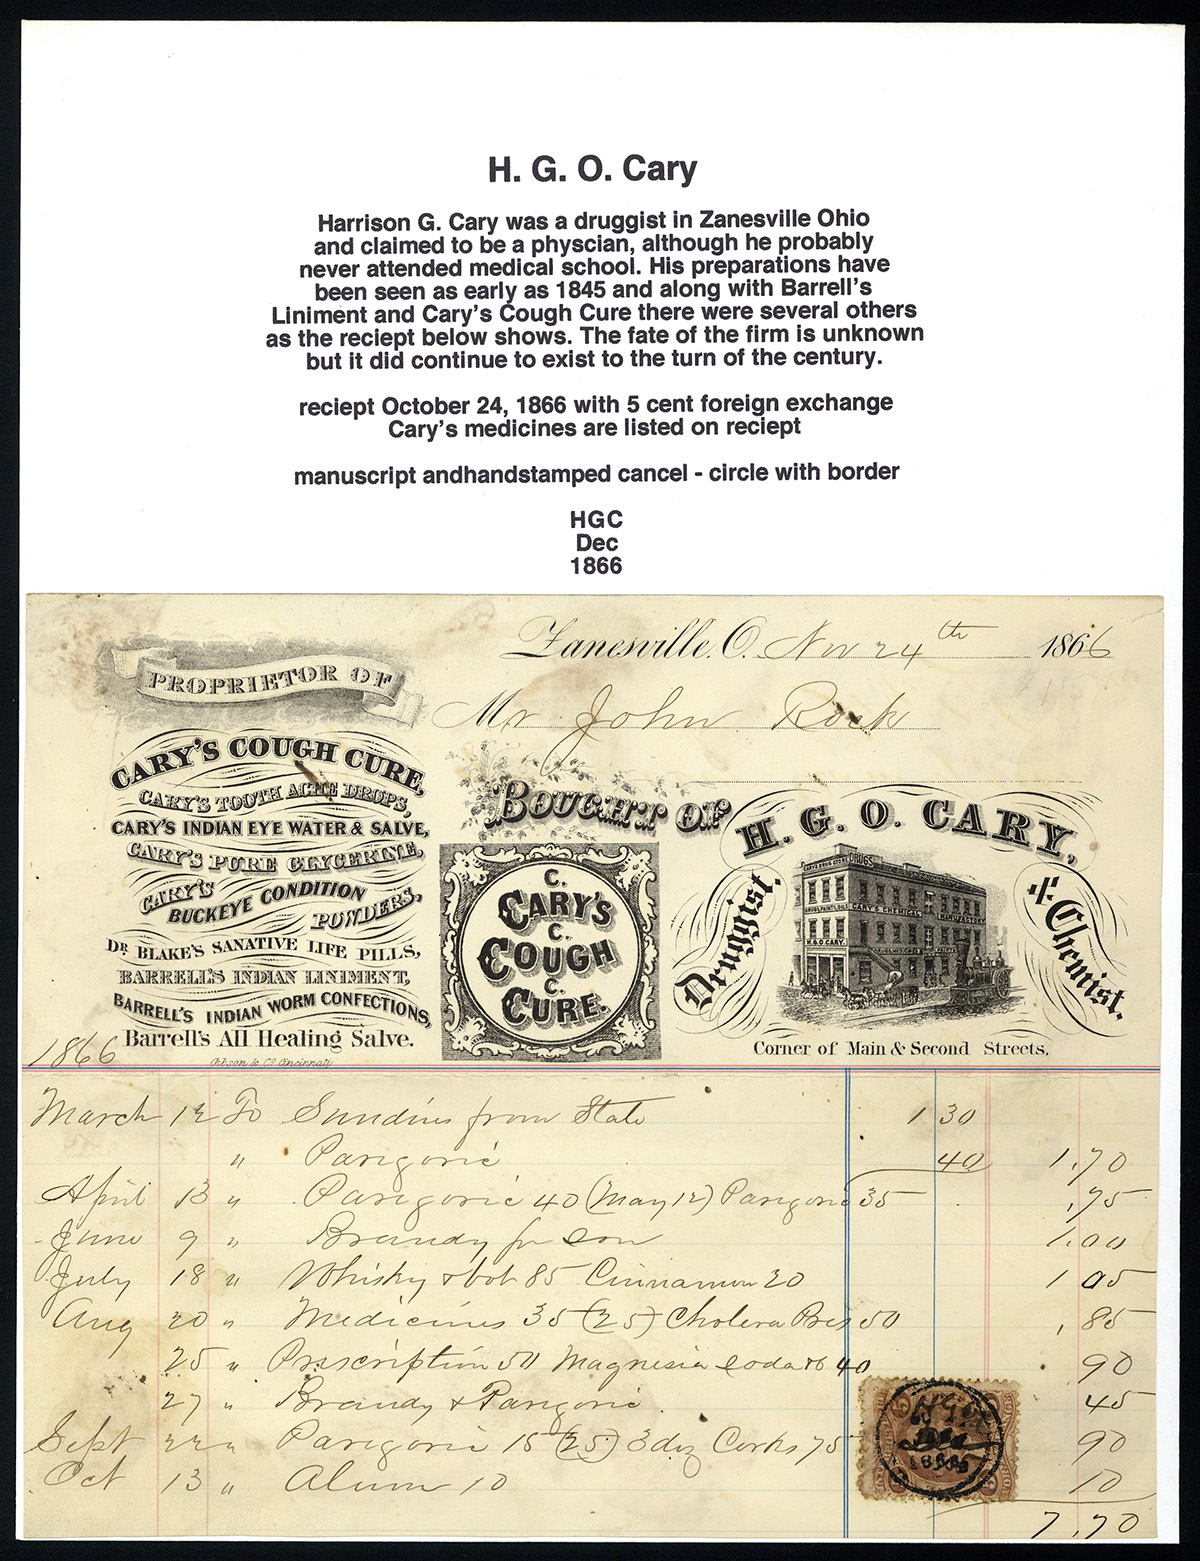 H. G. O. Cary
Harrison G. Cary was a druggist in Zanesville Ohio
and claimed to be a physcian, although he probably
never attended medical school. His preparations have
been seen as early as 1845 and along with Barrell's
Liniment and Cary's Cough Cure there were several others
as the reciept below shows. The fate of the firm is unknown
but it did continue to exist to the turn of the century.
reciept October 24, 1866 with 5 cent foreign exchange
Cary's medicines are listed on reciept
manuscript andhandstamped cancel - circle with border
HGC
Dec
1866
Zanesville, O. Nov 24th 1866
Mr John Rock
PROPRIETOR OF
CARY'S COUGH CURE,
CARY'S TOOTH ACHE DROPS,
CARY'S INDIAN EYE WATER & SALVE,
CARY'S PURE GLYCERINE,
CARY'S BUCKEYE CONDITION POWDERS,
DR BLAKE'S SANATIVE LIFE PILLS,
BARRELL'S INDIAN LINIMENT,
BARRELL'S INDIAN WORM CONFECTIONS,
Barrell's All Healing Salve.
Gibson & Co. Cincinnati
BOUGHT OF
H. G. O. CARY,
Druggist,
& Chemist.
C.
CARY'S
C.
COUGH
C.
CURE.
DRUGS
CARY'S CHEMICAL MANUFACTORY
H.G.O CARY.
Corner of Main & Second Streets.
1866
March 12 To Sundries from State 1 30
" Paregoric 40 1.70
April 13 " Paregoric 40 (May 12) Paregoric 35 .75
June 9 " Brandy for 1.00
July 18 " Whisky & bot 85 Cinnamon 20 1 05
Aug 20 " Medicines 35 (25) Cholera 50 .85
25 " Prescription 50 Magnesia Soda 40 90
27 " Brandy & Paregoric 45
Sept 22 " Paregoric 15 (25) 3 doz Corks 75 90
Oct 13 " Alum 10 10
7.70